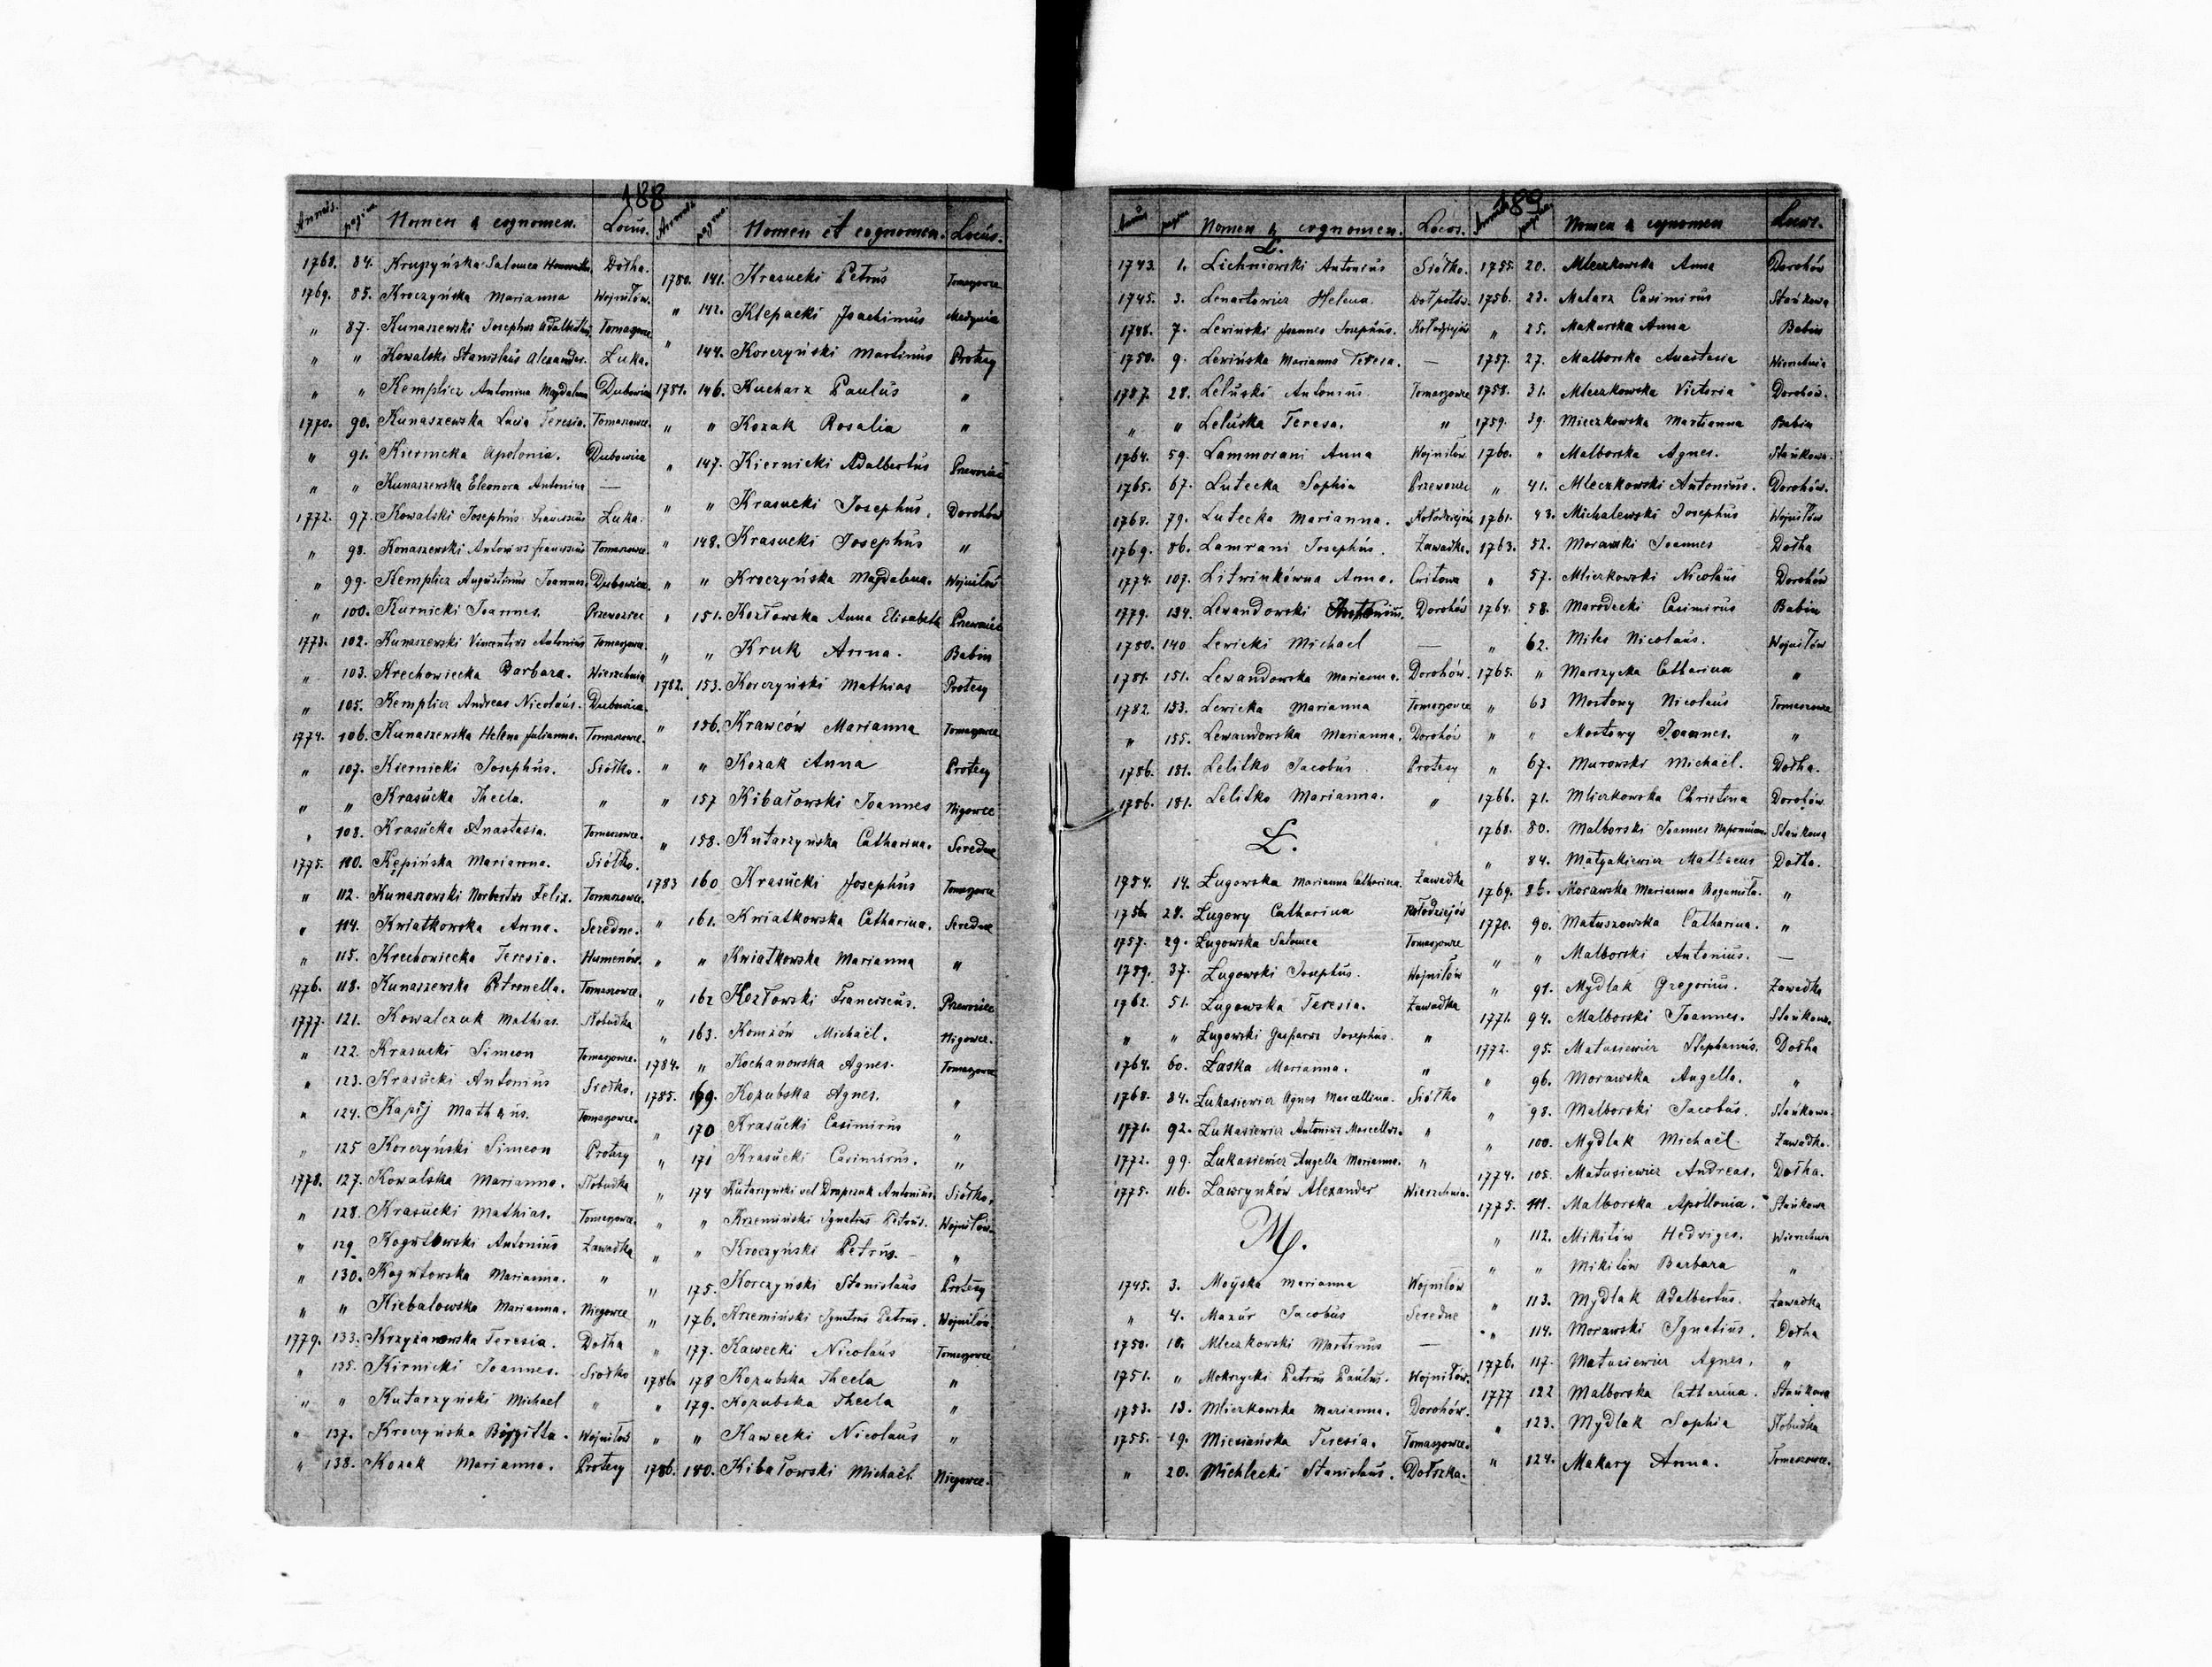 188
Annus. pagina Nomen & cognomen. Locus.
1768. 84. Krupzyńska Salomea Dołha.
1769. 85. Kroczyńska Marianna Wojniłów.
" 87. Kunaszewski Josephus Adalbertus Tomaszowce
" " Kowalski Stanislaus Alexander. Łuka.
" " Kemplicz Antonina Magdalena Dubowica
1770. 90. Kunaszewska Lucia Teresia. Tomaszowce.
" 91. Kiernicka Apolonia. Dubowica
" " Kunaszewska Eleonora Antonina —
1772. 97. Kowalski Josephus Franciscus Łuka.
" 98. Konaszewski Antonius Franciscus Tomaszowce.
" 99. Kemplicz Augustinus Joannes. Dubowica.
" 100. Kurnicki Joannes. Przewoziec
1773. 102. Kunaszewski Vincentius Antonius Tomaszowce.
" 103. Krechowiecka Barbara. Wierzchnia
" 105. Kemplicz Andreas Nicolaus. Dubowica.
1774. 106. Kunaszewska Helena Julianna. Tomaszowce.
" 107. Kiernicki Josephus. Siółko.
" " Krasucka Thecla. "
" 108. Krasucka Anastasia. Tomaszowce.
1775. 110. Kępińska Marianna. Siółko.
" 112. Kunaszowski Norbertus Felix. Tomaszowce.
" 114. Kwiatkowska Anna. Seredne.
" 115. Krechowiecka Teresia. Humenów.
1776. 118. Kunaszewska Petronella. Tomaszowce.
1777. 121. Kowalczuk Mathias. Słobudka
" 122. Krasucki Simeon Tomaszowce.
" 123. Krasucki Antonius Siołko.
" 124. Kapij Mathäus. Tomaszowce.
" 125 Korczyński Simeon Protesy
1778. 127. Kowalska Marianna. Słobudka
" 128. Krasucki Mathias. Tomaszowce.
" 129. Kogutowski Antonius Zawadka
" 130. Kogutowska Marianna. "
" " Kiebalowska Marianna. Niegowce
1779. 133. Krzyżanowska Teresia. Dołha
" 135. Kirnicki Joannes. Siołko
" " Kutarzyński Michael "
" 137. Kroczyńska Brygitta. Wojniłow
" 138. Kozak Marianna. Protesy
Annus pagina Nomen et cognomen. Locus.
1780. 141. Krasucki Petrus Tomaszowce
" 142. Klepacki Joachimus Medynia
" 144. Korczyński Martinus Protesy
1781. 146. Kucharz Paulus "
" " Kozak Rosalia "
" 147. Kiernicki Adalbertus Przewoziec
" " Krasucki Josephus. Dorohów
" 148. Krasucki Josephus "
" " Kroczyńska Magdalena. Wojniłow
" 151. Kozłowska Anna Elisabeth Przewoziec
" " Kruk Anna. Babin
1782. 153. Korczyński Mathias Protesy
" 156. Krawców Marianna Tomaszowce
" " Kozak Anna Protesy
" 157 Kibałowski Joannes Nigowce
" 158. Kutarzyńska Catharina. Seredne
1783 160 Krasucki Josephus Tomaszowce
" 161. Kwiatkowska Catharina. Seredne
" " Kwiatkowska Marianna "
" 162 Kozłowski Franciscus. Przewoziec
" 163. Komzów Michaël. Nigowce.
1784. " Kochanowska Agnes. Tomaszowce
1785. 169. Kozubska Agnes. "
" 170 Krasucki Casimirus "
" 171 Krasucki Casimirus. "
" 174 Kutarzyński vel Drapczuk Antonius. Siółko.
" " Krzemiński Ignatius Petrus. Wojniłow.
" " Kroczyński Petrus. — "
" 175. Korczyński Stanislaus Protesy
" 176. Krzemiński Ignatius Petrus. Wojniłów
" 177. Kawecki Nicolaus Tomaszowce
1786. 178 Kozubska Thecla "
" 179. Kozubska Thecla "
" " Kawecki Nicolaus "
1786. 180. Kibałowski Michaël. Niegowce.
189
Annus pagina Nomen & cognomen. Locus.
L.
1743. 1. Lichniowski Antonius Siółko.
1745. 3. Lenartowicz Helena. Dołpotów.
1748. 7. Lewinski Joannes Josephus. Kołodziejów
1750. 9. Lewińska Marianna Teresa. —
1757. 28. Leluski Antonius Tomaszowce
" " Leluska Teresa. "
1764. 59. Lammorani Anna Wojnilow
1765. 67. Lutecka Sophia Przewoziec
1768. 79. Lutecka Marianna. Kołodziejów
1769. 86. Lamrani Josephus. Zawadka.
1774. 107. Litwinkówna Anna. Critowa
1779. 134. Lewandowski Antonius. Dorohów
1780. 140 Lewicki Michael —
1781. 151. Lewandowska Marianna. Dorohów.
1782. 153. Lewicka Marianna Tomaszowce
" 155. Lewandowska Marianna. Dorohów
1786. 181. Lelitko Jacobus Protesy
1786. 181. Lelitko Marianna. "
Ł.
1754. 14. Ługowska Marianna Catharina. Zawadka
1756 28. Ługowy Catharina Kołodziejów
1757. 29. Ługowska Salomea Tomaszowce
1759. 37. Ługowski Josephus. Wojniłów
1762. 51. Ługowska Teresia. Zawadka
" " Ługowski Gasparus Josephus. "
1764. 60. Łaska Marianna. "
1768. 84. Łukasiewicz Agnes Marcellina. Siółko
1771. 92. Łukasiewicz Antonius Marcellus. "
1772. 99. Łukasiewicz Angella Marianna. "
1775. 116. Ławrynków Alexander Wierzchnia.
M.
1745. 3. Moÿska Marianna Wojniłow
" 4. Mazur Jacobus Seredne
1750. 10. Mleczkowski Martinus —
1751. " Mokrzycki Petrus Paulus. Wojniłów.
1753. 13. Mliczkowska Marianna. Dorohów.
1755. 19. Miesiańska Teresia. Tomaszowce.
" 20. Michlecki Stanislaus. Dołszka.
Annus pagina Nomen & cognomen Locus.
1755 20. Mleczkowska Anna Dorohów
1756. 23. Malarz Casimirus Stańkowa
" 25. Makarska Anna Babin
1757. 27. Malborska Anastasia Wierzchnia
1758. 31. Mleczkowska Victoria Dorohów.
1759. 39. Mieczkowska Martianna Babin
1760. " Malborska Agnes. Stańkowa.
" 41. Mleczkowski Antonius. Dorohów.
1761. 43. Michalewski Josephus Wojniłów
1763. 52. Morawski Joannes Dołha
" 57. Mliczkowski Nicolaus Dorohów
1764. 58. Marodecki Casimirus Babin
" 62. Miles Nicolaus. Wojniłów
1765. " Marszycka Catharina "
" 63 Mostowy Nicolaus Tomaszowce
" " Mostowy Joannes. "
" 67. Murowski Michaël. Dołha.
1766. 71. Mliczkowska Christina Dorohów
1768. 80. Malborski Joannes Nepomucen. Stańkowa
" 84. Matyakiewicz Mathaeus Dołha.
1769. 86. Morawska Marianna Bogumiła. "
1770. 90. Matuszowska Catharina. "
" " Malborski Antonius. —
" 91. Mydlak Gregorius. Zawadka
1771. 94. Malborski Joannes. Stańkowa
1772. 95. Matusiewicz Stephanus. Dołha
" 96. Morawska Angella. "
" 98. Malborski Jacobus. Stańkowa.
" 100. Mydlak Michaël. Zawadka.
1774. 105. Matusiewicz Andreas. Dołha.
1775. 111. Malborska Apollonia. Stańkowa
" 112. Mikitów Hedviges. Wierzchnia
" " Mikitów Barbara "
" 113. Mydlak Adalbertus. Zawadka
" 114. Morawski Ignatius. Dołha
1776. 117. Matusiewicz Agnes. "
1777 122 Malborska Catharina. Stańkowa
" 123. Mydlak Sophia Słobudka
" 124. Makary Anna. Tomaszowce.